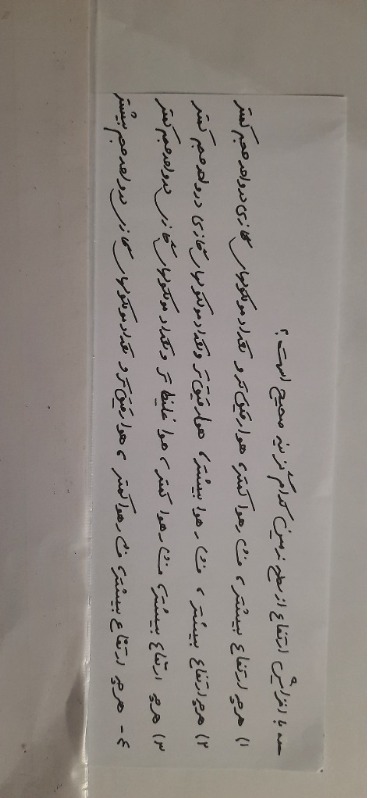 - با افزایش ارتفاع از سطح زمین کدام گزینه صحیح است؟
۱) هرچه ارتفاع بیشتر، فشار هوا کمتر، هوا رقیق تر و تعداد مولکولهای گازی در واحد حجم کمتر
۲) هرچه ارتفاع بیشتر، فشار هوا بیشتر، هوا رقیق تر و تعداد مولکولهای گازی در واحد حجم کمتر
۳) هرچه ارتفاع بیشتر، فشار هوا کمتر، هوا غلیظ تر و تعداد مولکولهای گازی در واحد حجم کمتر
۴- هرچه ارتفاع بیشتر، فشار هوا کمتر، هوا رقیق تر و تعداد مولکولهای گازی در واحد حجم بیشتر